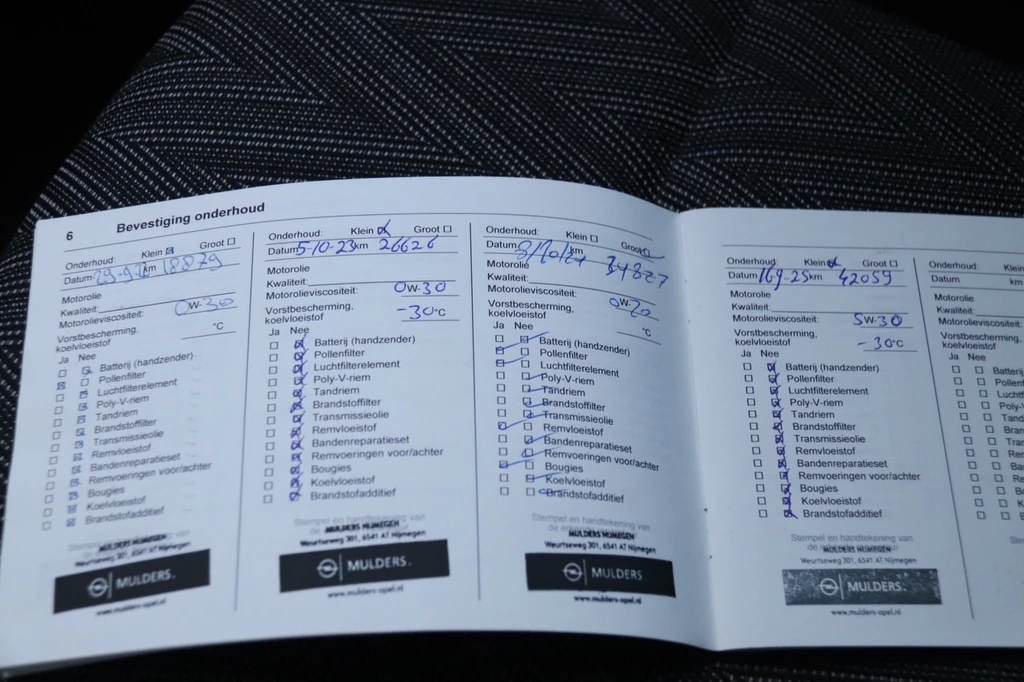 6
Bevestiging onderhoud
Onderhoud: Klein Groot
Datum km 18879
Motorolie
Kwaliteit:
Motorolieviscositeit: 0W-30
Vorstbescherming,
koelvloeistof °C
Ja Nee
Batterij (handzender)
Pollenfilter
Luchtfilterelement
Poly-V-riem
Tandriem
Brandstoffilter
Transmissieolie
Remvloeistof
Bandenreparatieset
Remvoeringen voor/achter
Bougies
Koelvloeistof
Brandstofadditief
Stempel en handtekening van
MULDERS NIJMEGEN
Weurtseweg 301, 6541 AT Nijmegen
MULDERS.
www.mulders-opel.nl
Onderhoud: Klein Groot
Datum 5-10-23 km 26626
Motorolie
Kwaliteit:
Motorolieviscositeit: 0W-30
Vorstbescherming,
koelvloeistof -30°C
Ja Nee
Batterij (handzender)
Pollenfilter
Luchtfilterelement
Poly-V-riem
Tandriem
Brandstoffilter
Transmissieolie
Remvloeistof
Bandenreparatieset
Remvoeringen voor/achter
Bougies
Koelvloeistof
Brandstofadditief
Stempel en handtekening van
MULDERS NIJMEGEN
Weurtseweg 301, 6541 AT Nijmegen
MULDERS.
www.mulders-opel.nl
Onderhoud: Klein Groot
Datum 8/10/24 34827
Motorolie
Kwaliteit:
Motorolieviscositeit: 0W-20
Vorstbescherming,
koelvloeistof °C
Ja Nee
Batterij (handzender)
Pollenfilter
Luchtfilterelement
Poly-V-riem
Tandriem
Brandstoffilter
Transmissieolie
Remvloeistof
Bandenreparatieset
Remvoeringen voor/achter
Bougies
Koelvloeistof
Brandstofadditief
Stempel en handtekening van
MULDERS NIJMEGEN
Weurtseweg 301, 6541 AT Nijmegen
MULDERS
www.mulders-opel.nl
Onderhoud: Klein Groot
Datum 169-25 km 42059
Motorolie
Kwaliteit:
Motorolieviscositeit: 5W-30
Vorstbescherming,
koelvloeistof -30°C
Ja Nee
Batterij (handzender)
Pollenfilter
Luchtfilterelement
Poly-V-riem
Tandriem
Brandstoffilter
Transmissieolie
Remvloeistof
Bandenreparatieset
Remvoeringen voor/achter
Bougies
Koelvloeistof
Brandstofadditief
Stempel en handtekening van
MULDERS NIJMEGEN
Weurtseweg 301, 6541 AT Nijmegen
MULDERS.
www.mulders-opel.nl
Onderhoud: Klein
Datum km
Motorolie
Kwaliteit:
Motorolieviscositeit:
Vorstbescherming,
koelvloeistof
Ja Nee